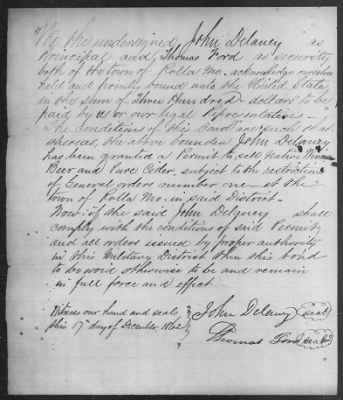 "We the undersigned John Delaney as
Principal and, Thomas Ford as security
both of the town of Rolla Mo. acknowledge ourselves
held and firmly bound unto the United States
in the sum of Three Hundred dollars to be
paid by us or our legal Representatives.
The conditions of this bond are such that
whereas, the above bounden John Delaney
has been granted a Permit to sell Native Wine
Beer and Pure Cider, subject to the restrictions
of General orders number one at the
town of Rolla Mo. in said District.
Now if the said John Delaney shall
comply with the conditions of said Permit
and all orders issued by proper authority
in this Military District then this bond
to be void otherwise to be and remain
in full force and effect
Witness our hand and seals John Delaney (seal)
this 17th day of December 1862 Thomas Ford (seal)